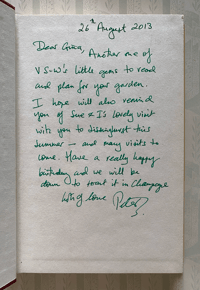 26th August 2013
Dear Greta, Another one of
VS-W's little gems to read
and plan for your garden.
I hope will also remind
you of Sue & I's lovely visit
with you to Sissinghurst this
Summer — and many visits to
come. Have a really happy
birthday and we will be
down to toast it in Champagne
Lots of love Peter